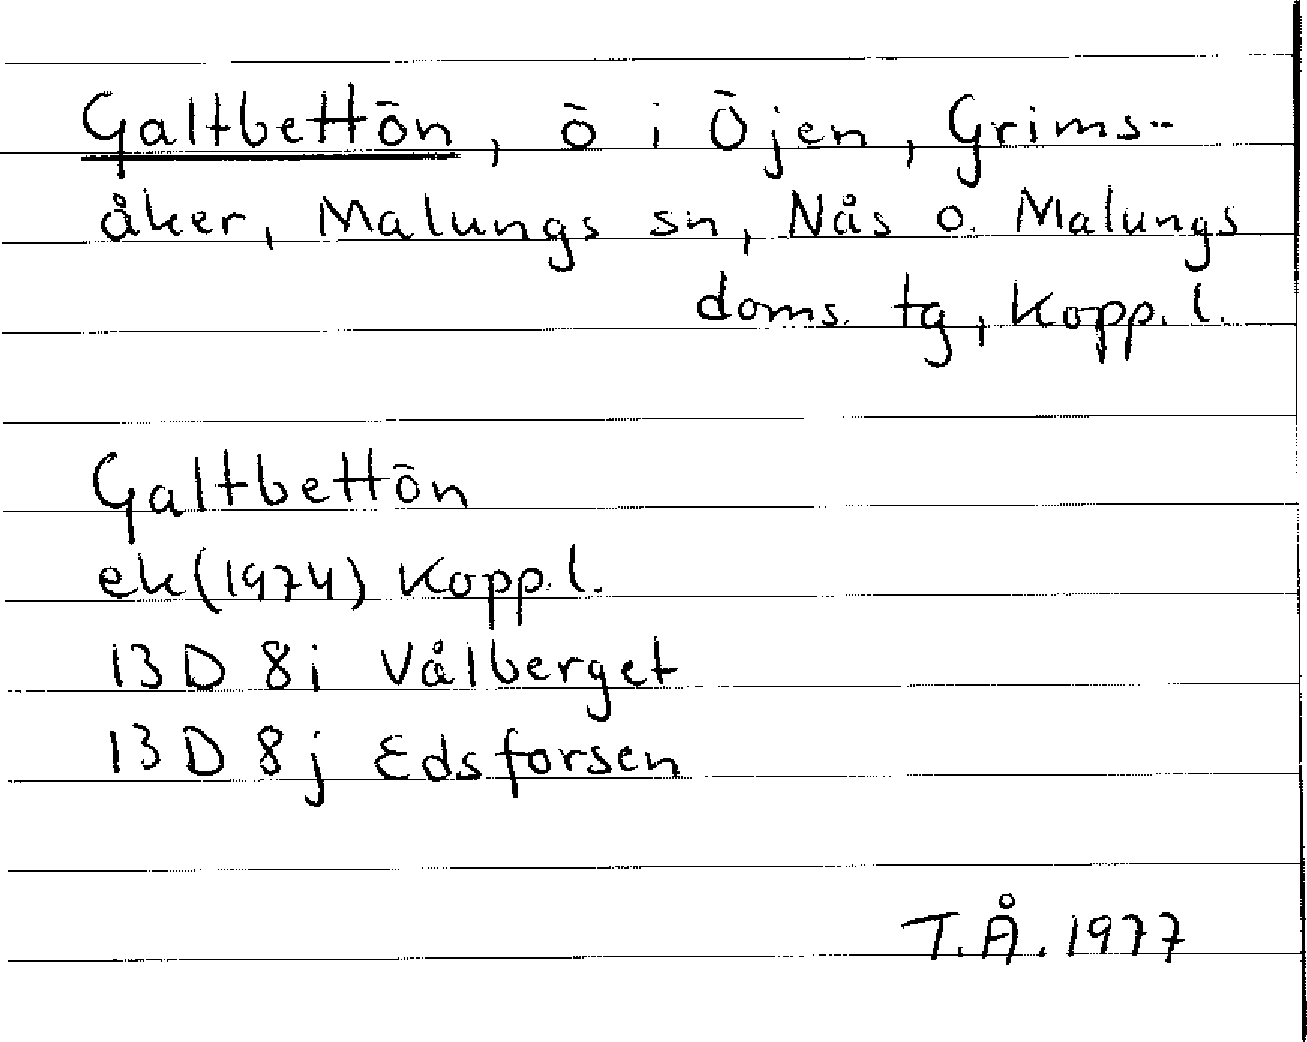 Galtbettön, ö i Öjen, Grims-
åker, Malungs sn, Nås o. Malungs
doms. tg, Kopp. l.
Galtbettön
ek (1974) Kopp. l.
13 D 8i Vålberget
13 D 8j Edsforsen
T.Å. 1977